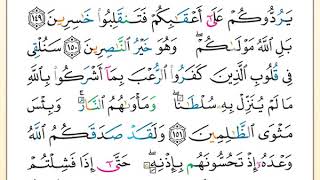 يَرُدُّوكُمْ عَلَىٰٓ أَعْقَـٰبِكُمْ فَتَنقَلِبُوا۟ خَـٰسِرِينَ ١٤٩
بَلِ ٱللَّهُ مَوْلَىٰكُمْ ۖ وَهُوَ خَيْرُ ٱلنَّـٰصِرِينَ ١٥٠ سَنُلْقِى
فِى قُلُوبِ ٱلَّذِينَ كَفَرُوا۟ ٱلرُّعْبَ بِمَآ أَشْرَكُوا۟ بِٱللَّهِ
مَا لَمْ يُنَزِّلْ بِهِۦ سُلْطَـٰنًا ۖ وَمَأْوَىٰهُمُ ٱلنَّارُ ۚ وَبِئْسَ
مَثْوَى ٱلظَّـٰلِمِينَ ١٥١ وَلَقَدْ صَدَقَكُمُ ٱللَّهُ
وَعْدَهُۥٓ إِذْ تَحُسُّونَهُم بِإِذْنِهِۦ ۖ حَتَّىٰٓ إِذَا فَشِلْتُمْ